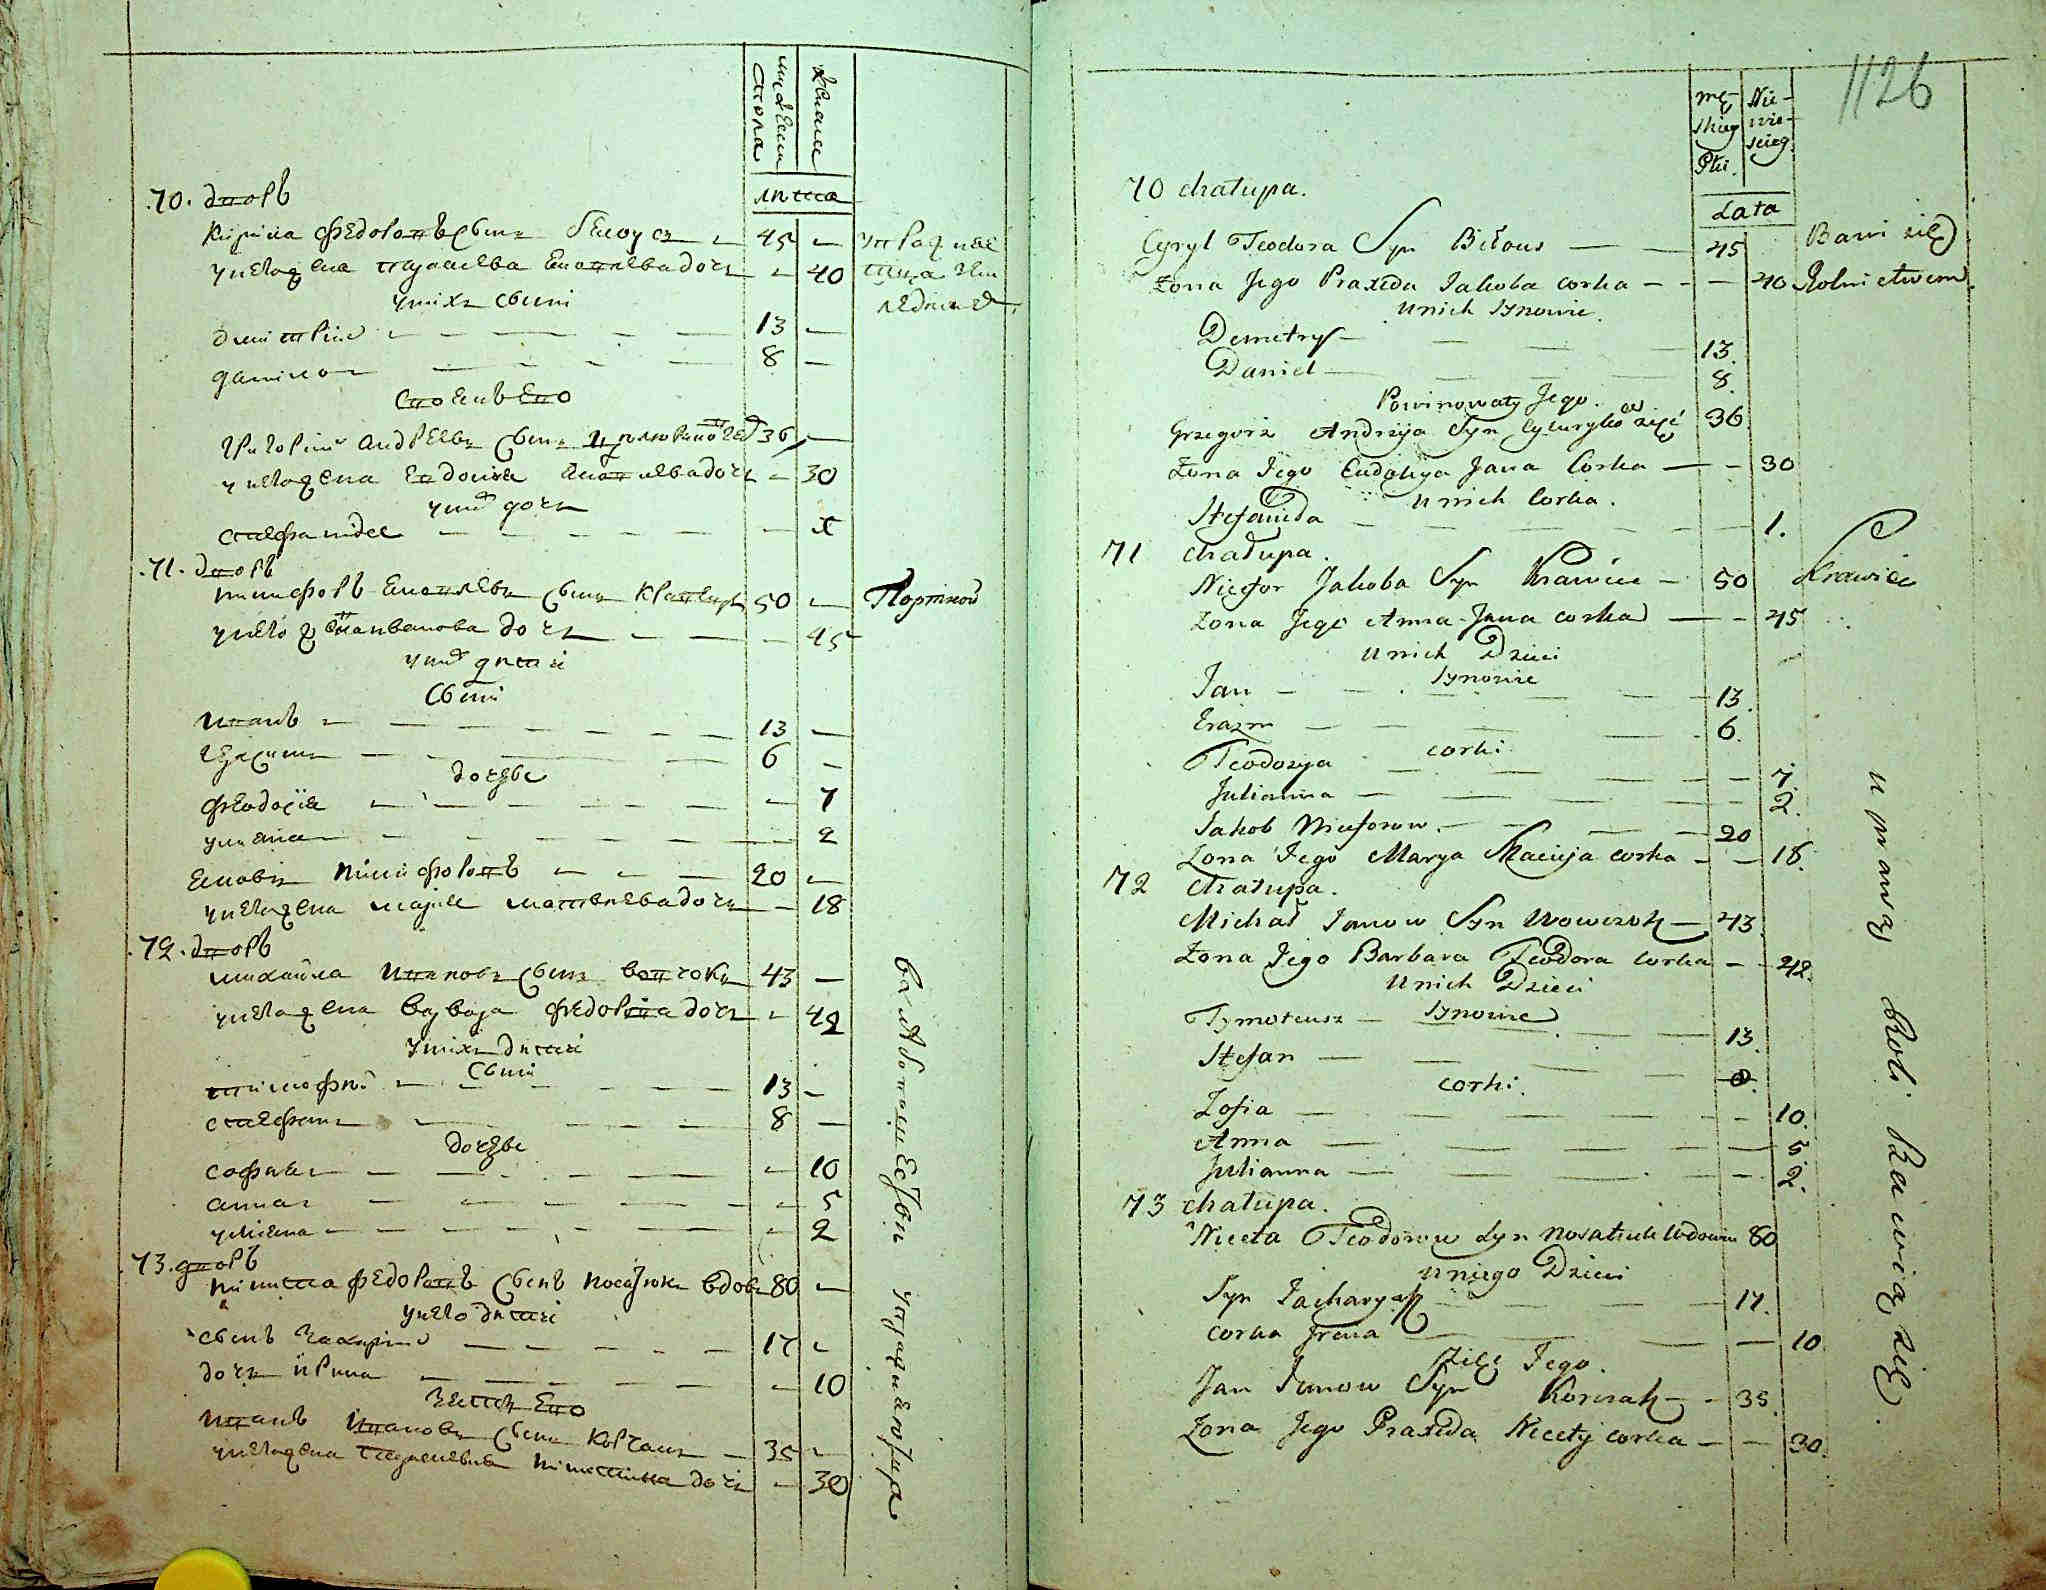 мужеска
пола
женска
лѣта
70. дворъ
Кирила Федоровъ сынъ Белоусъ — 45 —
у него жена Параскева Яковлева дочь — 40
у нихъ сыни
Димитрій — 13 —
Данило — 8 —
Своякъ его
Григорій Андреевъ сынъ 36 —
у него жена Евдокия Яковлева дочь — 30
у них дочь
Стефанида — 1
71. дворъ
Никифоръ Яковлевъ сынъ Кравецъ 50 — Портной
у него ж Анна Иванова дочь — 45
у них дѣти
сыни
Иванъ — 13 —
Герасимъ — 6 —
дочеры
Феодосія — 7
Улиана — 2
Яковъ Никифоровъ — 20 —
у него жена Марія Матвеева дочь — 18
72. дворъ
Михайла Ивановъ сынъ Вовчокъ 43 —
у него жена Варвара Федорова дочь — 42
у нихъ дѣти
сыни
Тимофей — 13 —
Стефанъ — 8 —
дочеры
Софія — 10
Анна — 5
Улияна — 2
73. дворъ
Никита Федоровъ сынъ Носатюкъ вдовъ 80 —
у него дѣти
сынъ Захарій — 17 —
дочь Ирина — 10
зять его
Иванъ Ивановъ сынъ Корчакъ — 35 —
у него жена Параскева Никитина дочь — 30
1126
mę-
skieg
Płci.
Nie-
wie-
scieg.
Lata
70 chałupa.
Cyryl Teodora Syn Biłous — 45 Bawi się
Żona Jego Praxeda Jakoba corka — 40 Rolnictwem.
u nich Synowie.
Demetry — 13.
Daniel — 8.
Powinowaty Jego.
Grzegorz Andrzija Syn zięć 36
Żona Jego Eudokya Jana Corka — 30
u nich Corka.
Stefanida — 1.
71 chałupa.
Nicefor Jakoba Syn Krawiec — 50 Krawiec
Żona Jego Anna Jana corka — 45
u nich Dzieci
Synowie
Jan — 13.
Erazm — 6.
corki
Teodozya — 7.
Julianna — 2.
Jakob Niceforow — 20
Żona Jego Marya Macieja corka — 18.
72 chałupa.
Michał Janow Syn Wowczok — 43
Żona Jego Barbara Teodora corka — 42.
u nich Dzieci
Synowie
Tymoteusz — 13.
Stefan — 8.
corki.
Zofia — 10.
Anna — 5
Julianna — 2.
73 chałupa.
Niceta Teodorow Syn Nosatiuk Wdowiec 80
u niego Dzieci
Syn Zacharyasz — 17.
corka Irena — 10
Zięć Jego.
Jan Janow Syn Korczak — 35.
Żona Jego Praxeda Nicety corka — 30.
u prawy Roli Bawią się.